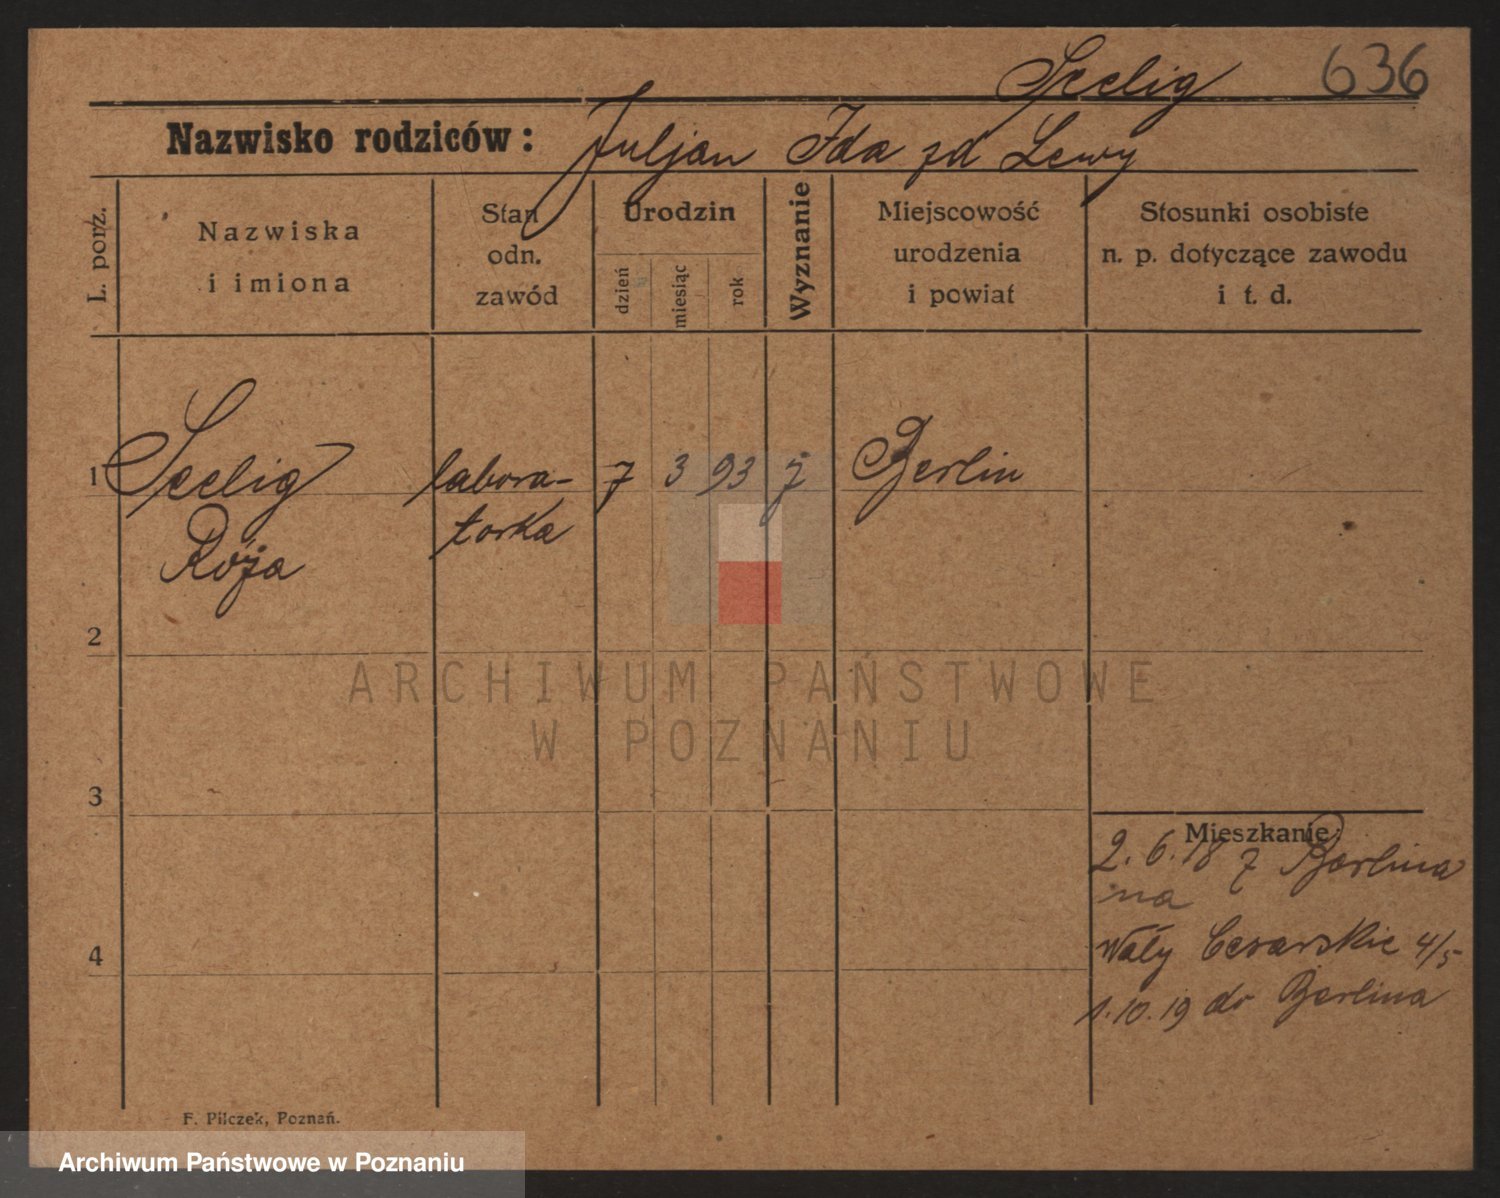 Seelig 636
Nazwisko rodziców: Juljan Ida zd Lewy
L. porz.
Nazwiska
i imiona
Stan
odn.
zawód
Urodzin
dzień
miesiąc
rok
Wyznanie
Miejscowość
urodzenia
i powiat
Stosunki osobiste
n. p. dotyczące zawodu
i t. d.
1 Seelig labora- 7 3 93 j Berlin
Róża torka
2
3
4
Mieszkanie:
2. 6. 18 z Berlina
na
Wały Cesarskie 4/5
1. 10. 19 do Berlina
F. Pilczek, Poznań.
ARCHIWUM PAŃSTWOWE
W POZNANIU
Archiwum Państwowe w Poznaniu